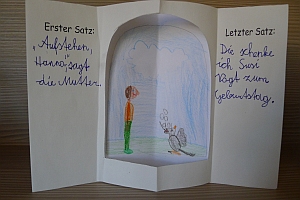 Erster Satz:
„Aufstehen,"
Hanna, sagt
die Mutter.
Letzter Satz:
Die schenke
ich Susi
Vogt zum
Geburtstag.